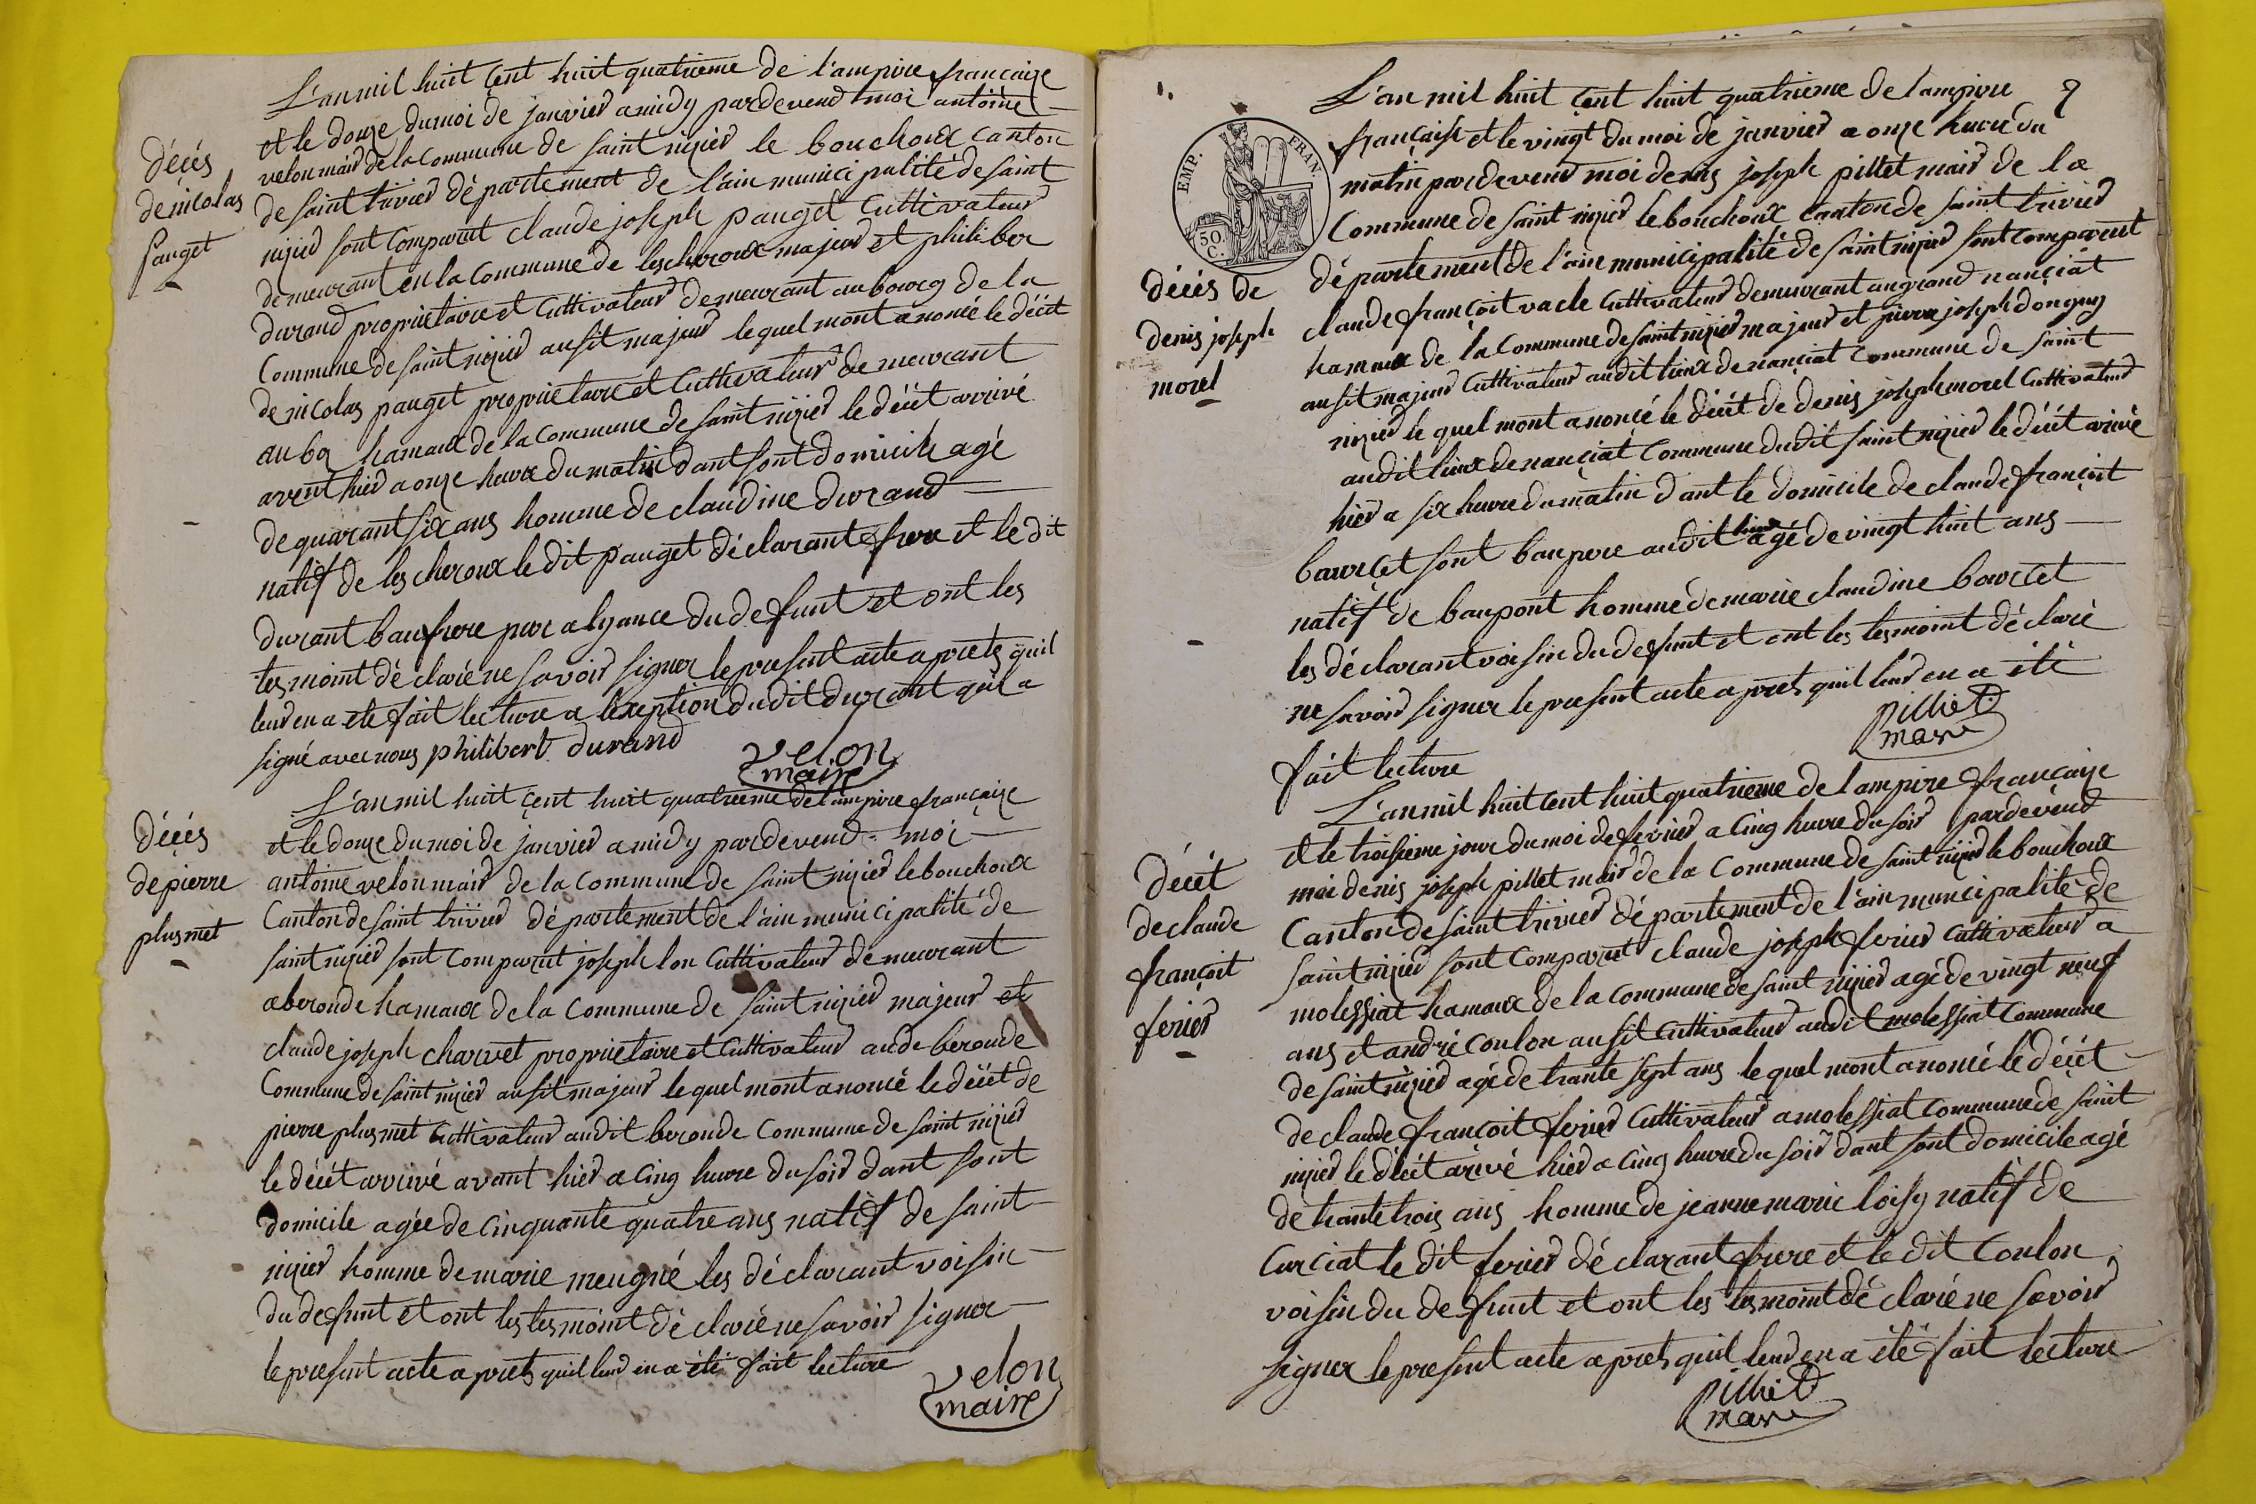 L'an mil huit çent huit quatrieme de l'ampire françaize
et le douze du moi de janvier a midy pardevend moi antoine
velon mair de la Commune de saint nizier le bouchoux canton
de saint trivier département de l'ain municipalité de saint
nizier sont Comparut claude joseph pauget Cultivateur
demeurant en la Commune de lescheroux majeur et philiber
durand proprietaire et Cultivateur demeurant au bourg de la
Commune de saint nizier ausit majeur lequel mont anoncé le décet
de nicolas pauget proprietaire et Cultivateur demeurant
au ba hamaux de la Commune de saint nizier le décet arrivé
avent hier a onze heure du matin dant sont domicile agé
de quarant six ans homme de claudine durand
natif de lescheroux le dit pauget déclarant frere et le dit
durant baufrere par alyance du defunt et ont les
tesmoint déclaré ne savoir signer le present acte aprets quil
leur en a ete fait lecture a lexeption du dit durant qui a
signé avec nous philibert durand
velon
maire
décés
de nicolas
pauget
L'an mil huit çent huit quatrieme de l'ampire françaize
et le douze du moi de janvier a midy pardevend moi
antoine velon mair de la Commune de saint nizier le bouchoux
Canton de saint trivier département de l'ain municipalité de
saint nizier sont Comparut joseph lon Cultivateur demeurant
a beronde hamaux de la Commune de saint nizier majeur et
claude joseph charvet proprietaire et Cultivateur au de beronde
Commune de saint nizier ausit majeur lequel mont anoncé le décet de
pierre plusmet Cultivateur audit beronde Commune de saint nizier
le décet arrivé avant hier a Cinq heure du soir dant sont
domicile agée de Cinquante quatre ans natif de saint
nizier homme de marie meugné les déclarant voisin
du defunt et ont les tesmoint déclaré ne savoir signer
le present acte aprets quil leur en a été fait lecture
velon
maire
décés
de pierre
plusmet
L'an mil huit çent huit quatrieme de lampire
française et le vingt du moi de janvier a onze heure du
matin pardevend moi denis joseph pillet mair de la
Commune de saint nizier le bouchoux Canton de saint trivier
département de l'ain municipalité de saint nizier sont Comparut
claude françoit vacle Cultivateur demeurant au grand nançiat
hamaux de la Commune de saint nizier majeur et pierre joseph donguy
ausit majeur Cultivateur audit lieux de nançiat Commune de saint
nizier le quel mont anoncé le décét de denis joseph morel Cultivateur
audit lieux de nançiat Commune dudit saint nizier le décét arivé
hier a six heure du matin dant le domicile de claude françoit
bourçet sont baupere audit lieux agé de vingt huit ans
natif de baupont homme de marie claudine bourcet
les déclarant voisin du defunt et ont les tesmoint déclaré
ne savoir signer le present acte aprets quil leur en a été
fait lecture
pilliet
mare
EMP. FRAN.
50. C.
décés de
denis joseph
morel
L'an mil huit cent huit quatrieme de lampire françaize
et le troisieme jour du moi de fevrier a Cinq heure du soir pardevend
moi denis joseph pillet mair de la Commune de saint nizier le bouchoux
Canton de saint trivier département de l'ain municipalité de
saint nizier sont Comparut claude joseph ferier Cultivateur a
molessiat hamaux de la Commune de saint nizier agé de vingt neuf
ans et andré Coulon ausit Cultivateur audit molessiat Commune
de saint nizier agé de trante sept ans le quel mont anoncé le décét
de claude françoit ferier Cultivateur a molessiat Commune de saint
nizier le décét arivé hier a Cinq heure du soir dant sont domicile agé
de trante trois ans homme de jeanne marie loisy natif de
Curciat le dit ferier déclarant frere et le dit Coulon
voisin du defunt et ont les tesmoint déclaré ne savoir
signer le present acte aprets quil leur en a été fait lecture
pilliet
mare
décét
de claude
françoit
ferier